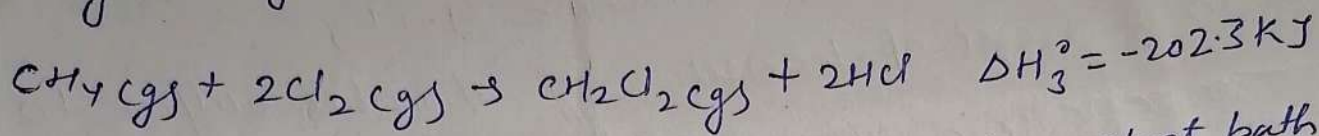 CH₄(g) + 2Cl₂(g) → CH₂Cl₂(g) + 2HCl ΔH₃° = -202.3 KJ
bath